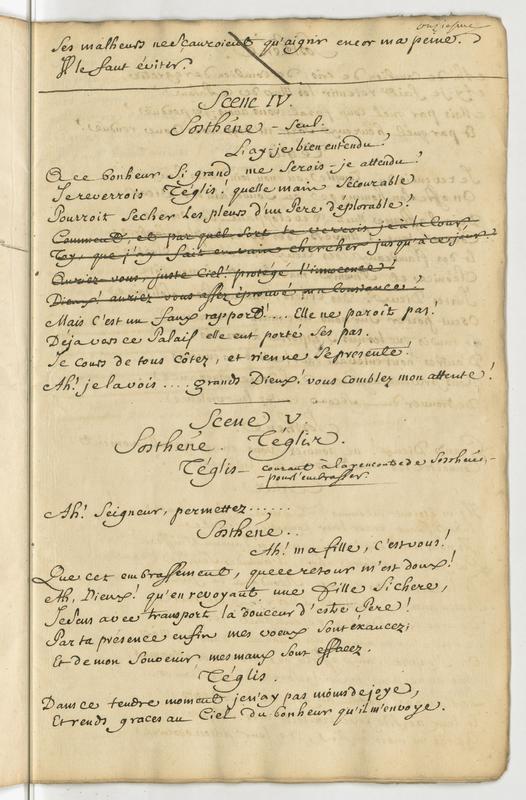 onziesme
Ses malheurs ne Scauroient qu'aigrir encor ma peine.
Il le faut éviter.
Scene IV.
Sosthéne - Seul.
L'ay-je bien entendu!
O ce bonheur si grand me Serois-je attendu!
Je reverrois Téglis! quelle main Secourable
Pourroit Secher les pleurs d'un Pere déplorable!
Comment et par quel Sort te verrois je à la Cour
Toy, que j'ay fait en vain chercher jusqu'à ce jour?
Auriez-vous, juste Ciel! protégé l'innocence!
Dieux! auriez vous assez éprouvé ma Constance!
Mais C'est un faux rapport!.... Elle ne paroît pas!
Déja vers ce Palais elle eut porté Ses pas.
Je Cours de tous côtez, et rien ne Se presente!
Ah! je la vois .... grands Dieux! vous Comblez mon attente!
Scene V.
Sosthéne. Téglis.
Téglis - courant à la rencontre de Sosthéne -
- pour l'embrasser.
Ah! Seigneur, permettez......
Sosthéne..
Ah! ma fille, C'est vous!
Que cet embrassement, que ce retour m'est doux!
Ah, Dieux! qu'en revoyant une fille Si chere,
Je Sens avec transport la douceur d'estre Pere!
Par ta présence enfin mes voeux Sont éxaucez;
Et de mon Souvenir mes maux Sont effacez.
Téglis.
Dans ce tendre moment je n'ay pas moins de joye,
Et rends graces au Ciel du bonheur qu'il m'envoye.